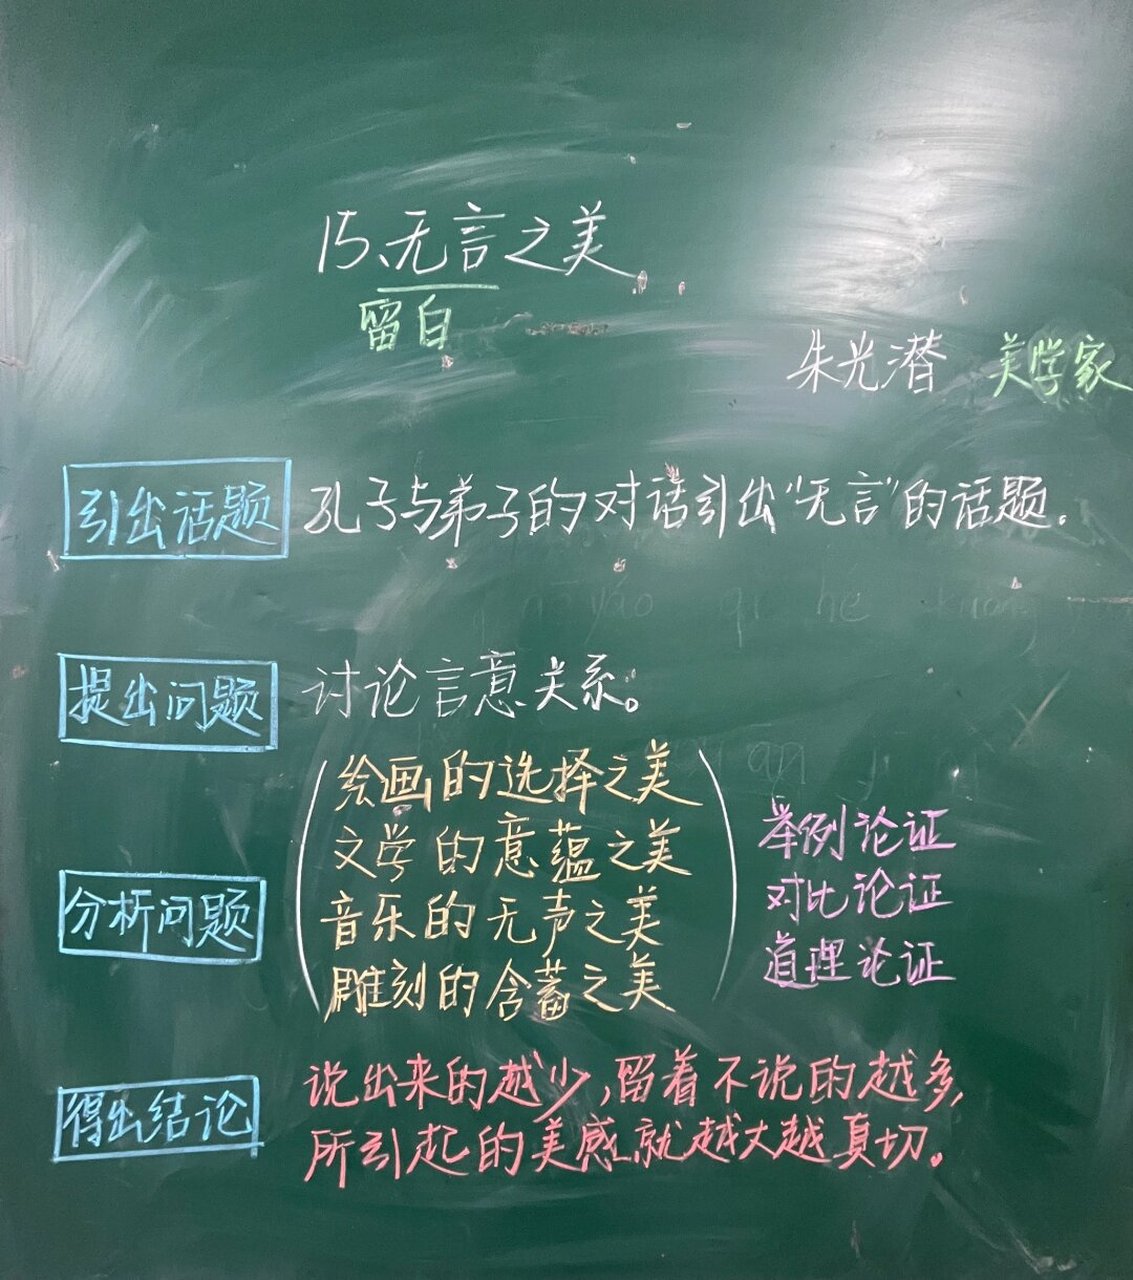 15、无言之美
留白
朱光潜 美学家
引出话题 孔子与弟子的对话引出“无言”的话题.
提出问题 讨论言意关系。
绘画的选择之美
文学的意蕴之美 举例论证
分析问题 音乐的无声之美 对比论证
雕刻的含蓄之美 道理论证
得出结论 说出来的越少,留着不说的越多,
所引起的美感就越大越真切。